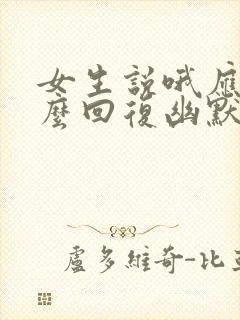 女生說哦應
麼回復幽默
盧多維奇-比亞